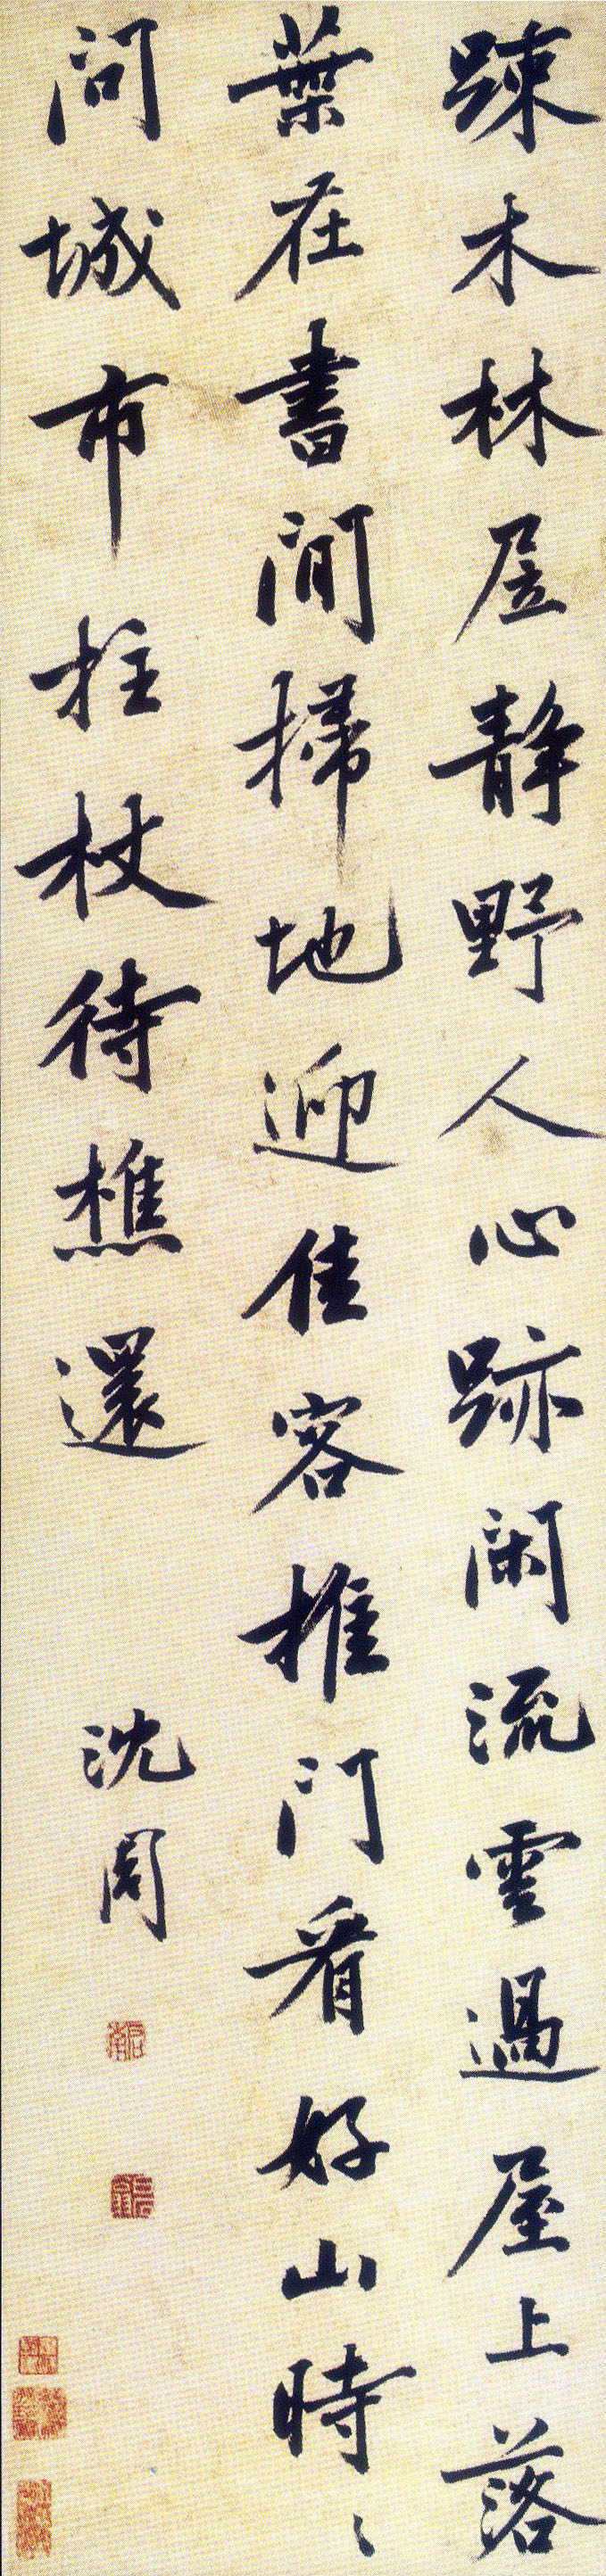 踈木林居静野人心跡閑流雲過屋上落
葉在書間掃地迎佳客推门看好山時〻
问城市拄杖待樵還
沈周
啟南